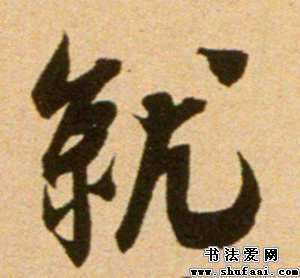 就
书法爱网
www.shufaai.com